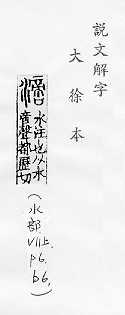 説文解字
大徐本
滴
水注也从水
啻聲都歷切
(水部
VII上,
p6,
b6,)